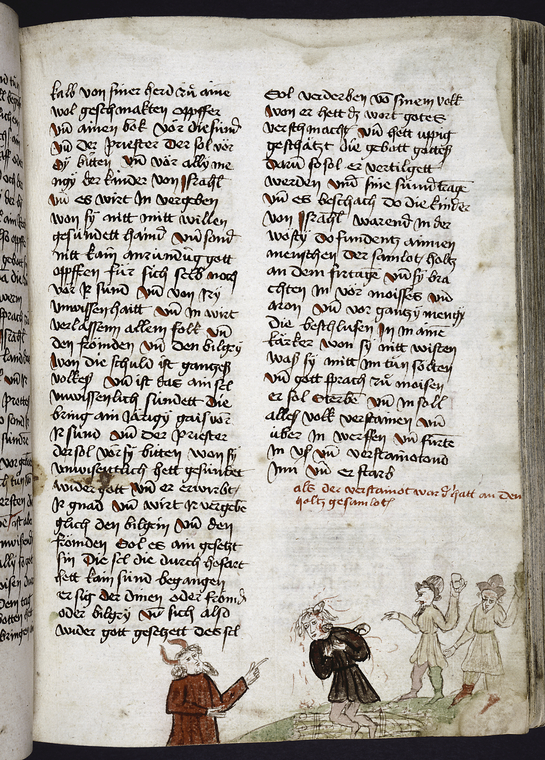 kalb von siner herd zů aine
wol geschmakten opffer
vñ ainen bok vor die sünd
vñ der priester der sol vor
sÿ bitten vñ vor ally me
ngÿ der kinder von Israhl
vñ es wirt in vergeben
won sÿ nitt mitt willen
gesündett hand vñ sond
nitt kain anzündung gott
opffren für sich selb noch
vor ir sünd vñ von irÿ
vnwissenhaitt vñ in wirt
verlassen allem folk vñ
den frömden vñ den bilgrÿ
won die schuld ist gantzes
volkes vñ ist das ain sel
vnwissenlich sündett die
bring ain järigÿ gais vor
ir sünd vñ der priester
der sol vor sÿ bitten won sÿ
vnwissentlich hett gesündet
wider gott vñ er erwirbt
ir gnad vñ wirt ir vergebe
glich den bilgrin vñ den
frömden Sol es ain gesetzt
sin Die sel die durch hofart
hett kain sünd begangen
er sig der ainen oder frömd
oder bilgrÿ vñ sich also
wider gott gesetzett des sel
Sol verderben vō sinem volk
won er hett dz wort gotes
verschmacht vñ hett üppig
geschätzt die gebott gottes
darū so sol er vertilgett
werden vnd sine sünd trage
vñ es beschach do die kinder
von Israhl warend in der
wüstÿ do fundentz ainnen
menschen der samlot holtz
an dem firtage vñ sÿ bra
chten in vor moises vñ
aron vñ vor gantzÿ mengÿ
die beschlussen in in aine
kärker won sÿ nitt wisten
was sÿ mitt im tůn solten
vñ gott sprach zů moisen
er sol sterbe vñ in soll
alles volk verstainen vñ
über in werffen vñ fürte
in vs vñ verstainotend
inn vñ er starb
als der verstainot ward d' hatt an den
holtz gesamlot